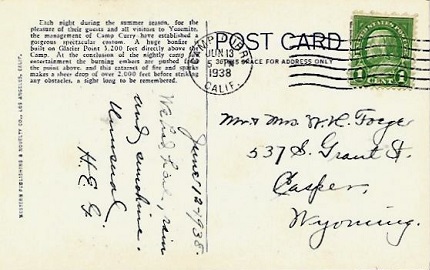 Each night during the summer season, for the
pleasure of their guests and all visitors to Yosemite,
the management of Camp Curry have established a
gorgeous spectacular custom. A huge bonfire is
built on Glacier Point 3,200 feet directly above the
Camp. At the conclusion of the nightly camp fire
entertainment the burning embers are pushed
the point above, and this cataract of fire and sparks
makes a sheer drop of over 2,000 feet before striking
any obstacles, a sight long to be remembered.
WESTERN PUBLISHING & NOVELTY CO., LOS ANGELES, CALIF.
June 12 1938.
rain
and sunshine.
Unusual.
H.E.G.
CAMP CURRY
JUN 13
5 PM
1938
CALIF.
POST CARD
SPACE FOR ADDRESS ONLY
1 CENT 1
Mr + Mrs W. K.
537 S. Grant St.
Casper,
Wyoming.